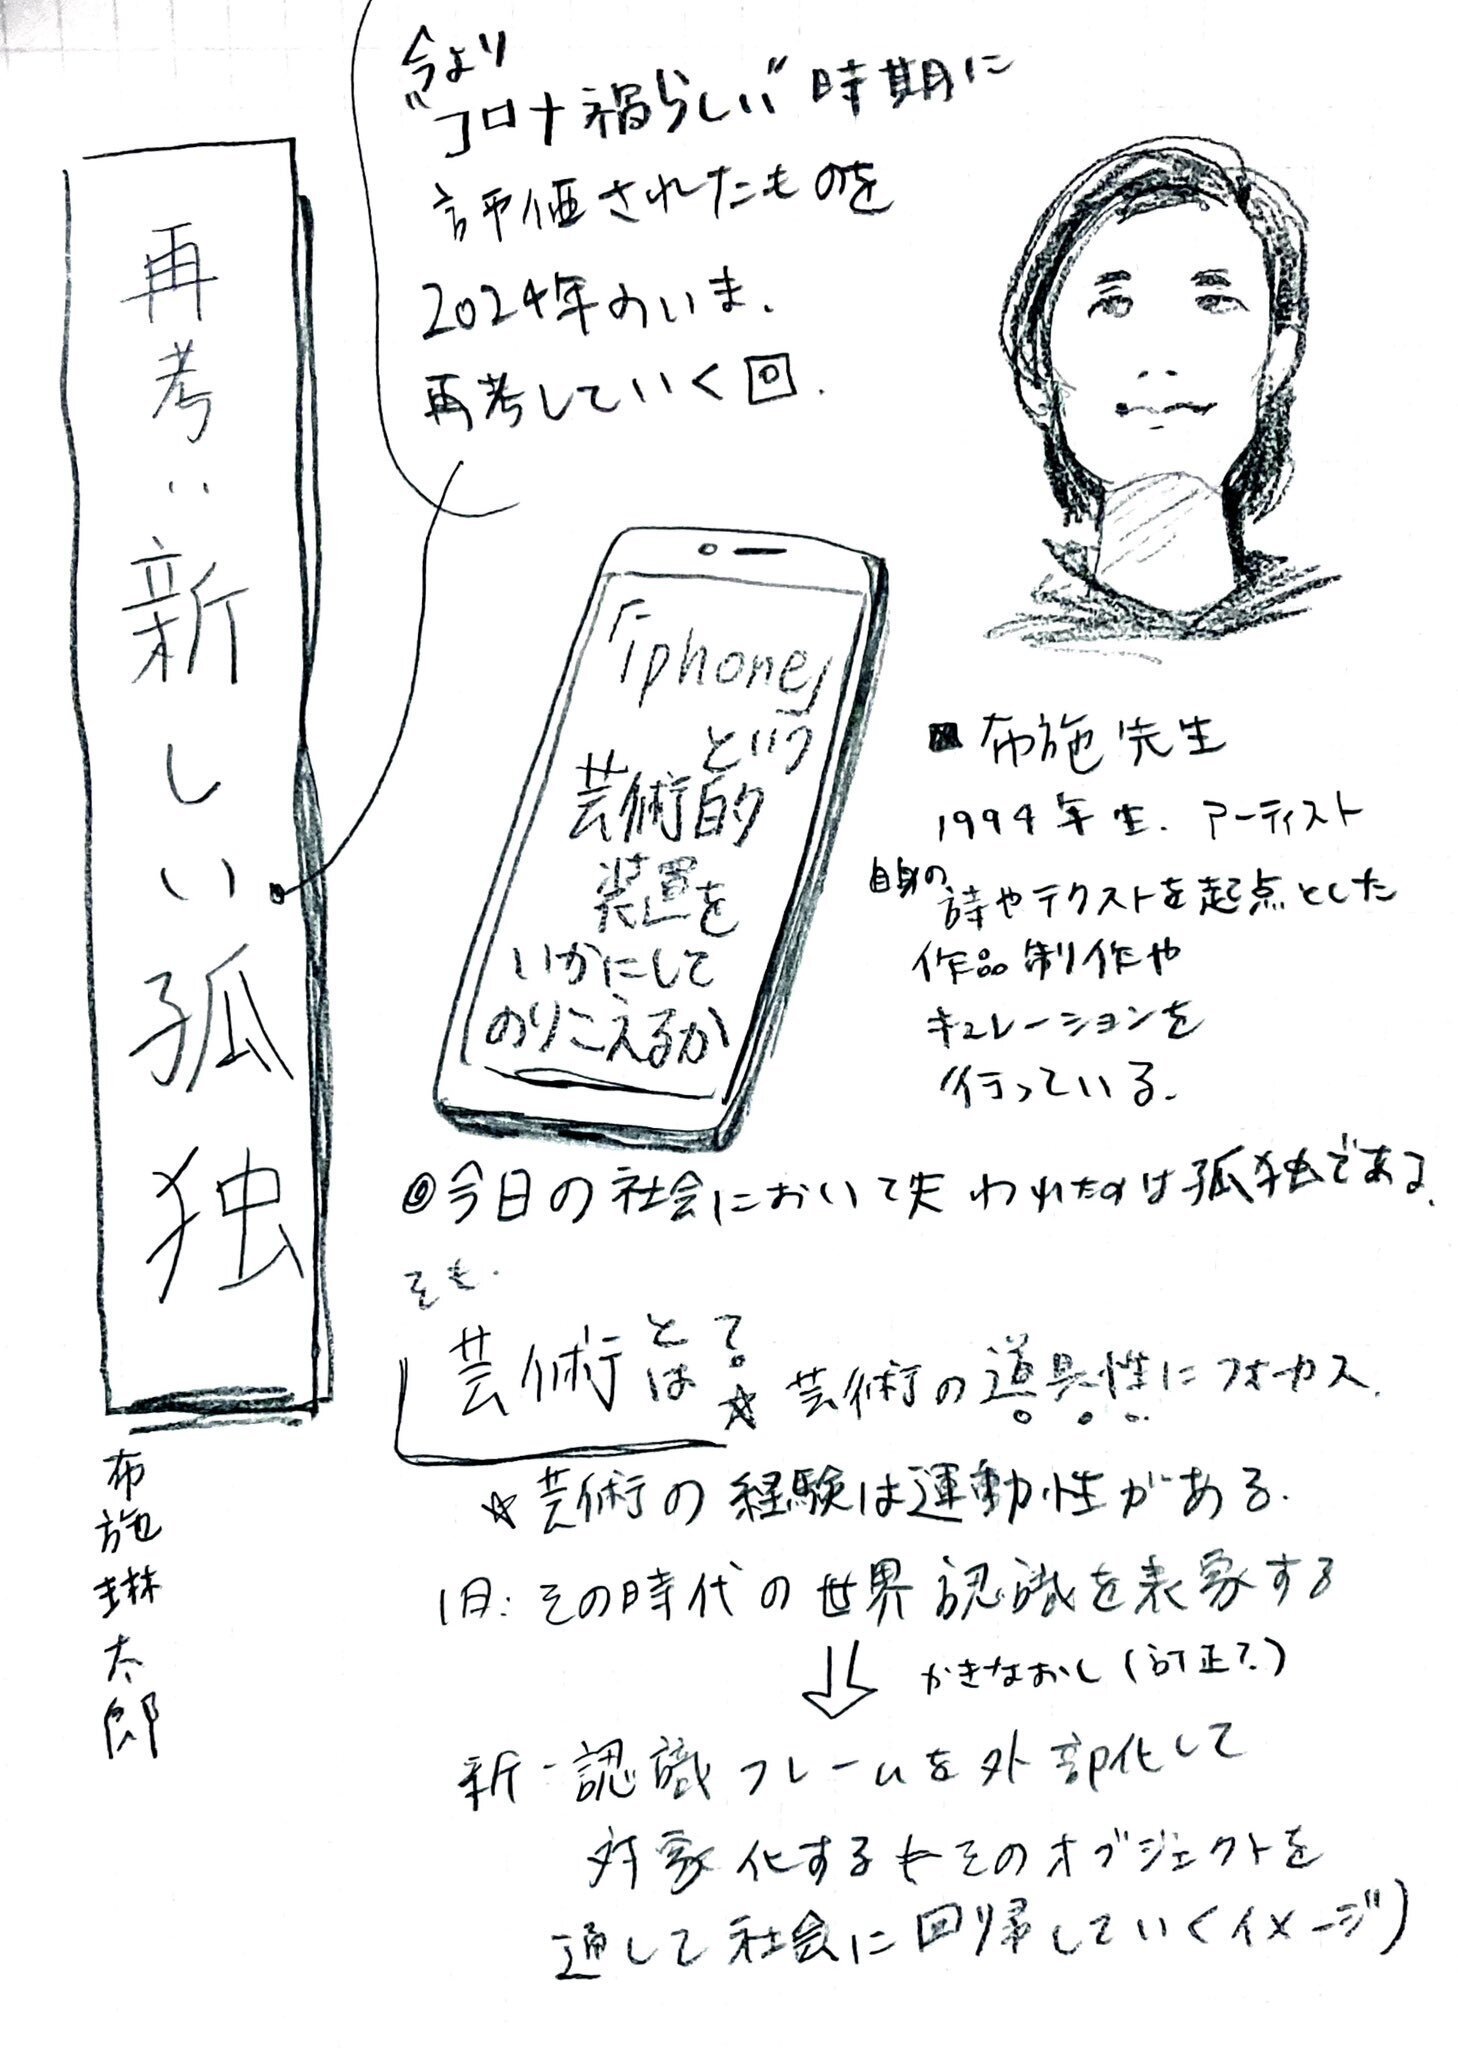 再考:新しい孤独
布施琳太郎
今より
"コロナ禍らしい"時期に
評価されたものを
2024年のいま、
再考していく回.
「iphone」
という
芸術的
装置を
いかにして
のりこえるか
■布施先生
1994年生. アーティスト
自身の
詩やテクストを起点とした
作品制作や
キュレーションを
行っている.
◎今日の社会において失われたのは孤独である.
そも.
芸術とは?
☆芸術の道具性にフォーカス.
☆芸術の経験は運動性がある.
旧:その時代の世界認識を表象する
⇓ かきなおし(訂正?)
新-認識フレームを外部化して
対象化する(そのオブジェクトを
通して社会に回帰していくイメージ)